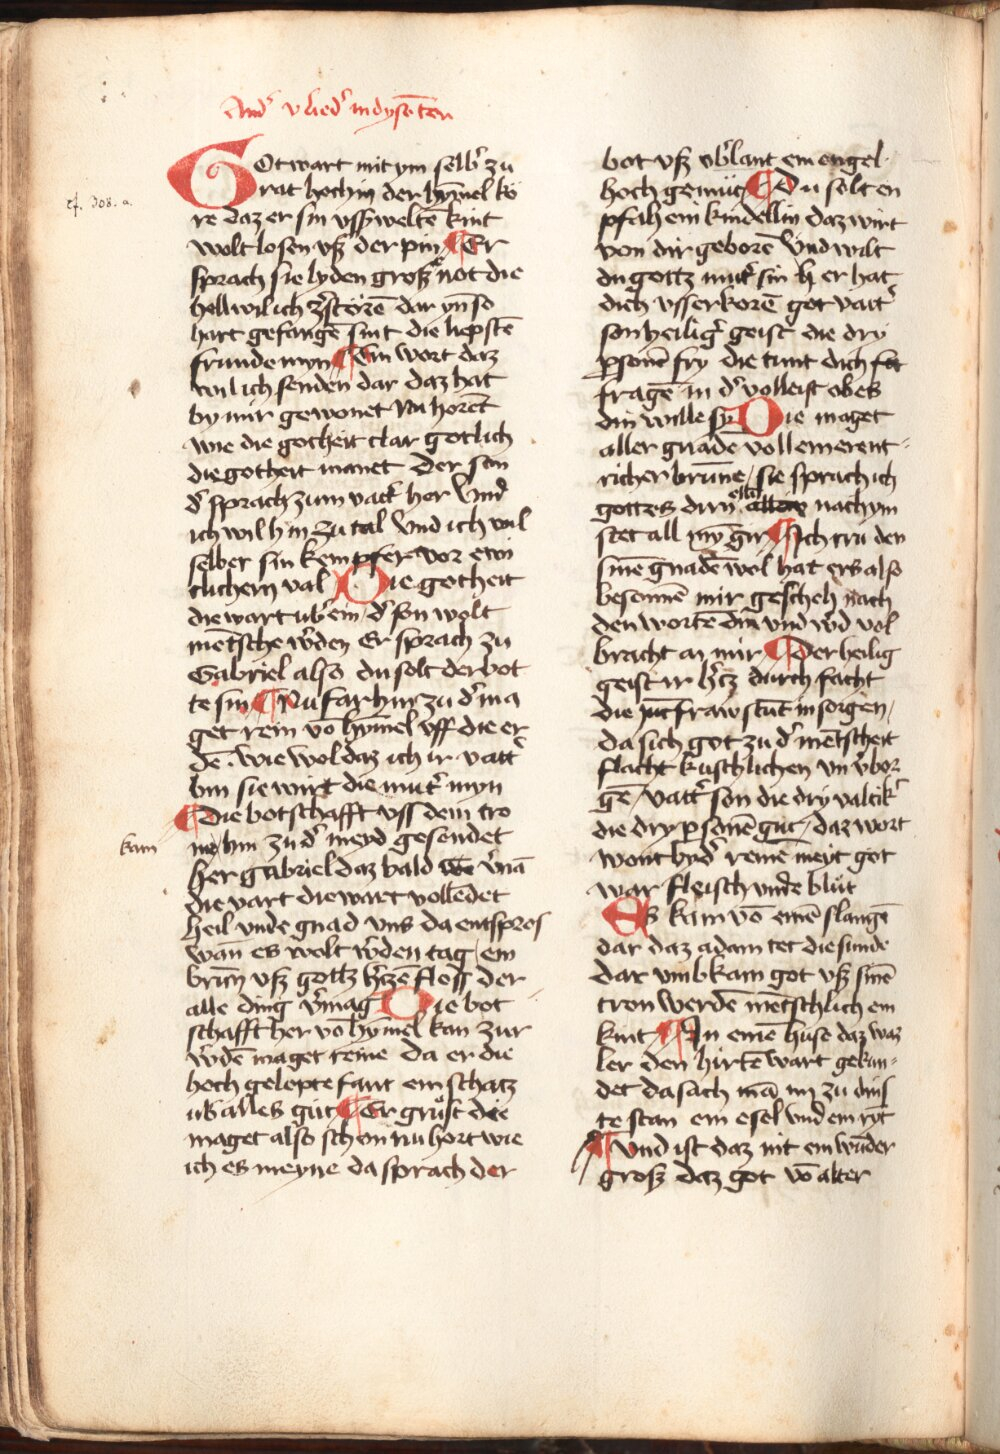 And' v lied' in dys̄e ten
cf. 308. a.
GOt wart mit ym selb' zu
rat hoch in der hȳmel kö
re daz er sin vsserweltē kint
wolt losen vß der pin Er
sprach sie lyden groß not die
hell wil ich z'storē dar yn so
hart gefangē sint die liepstē
frunde myn Ein wort daz
wil ich senden dar daz hat
by mir gewonet Nu horēt
wie die gotheit clar gotlich
die gotheit manet Der son
d' sprach zum vatt' her Vnd
ich wil hin zu tal Vnd ich wil
selber sin kempfer vor ewi
clichem val Die gotheit
die wart ub' ein d' son wolt
mētsche w'den Er sprach zu
Gabriel also du solt der bot
te sin Nu far hin zu d' ma
get rein vō hȳmel vff die er
dē . wie wol daz ich ir vatt'
bin sie wirt die mut' myn
Die botschafft vss dem tro
kam
ne hin zu d' meyd gesendet
her gabriel daz bald v'nā
die vart die wart vollēdet
heil vnde gnad vns da entspros
wan̄ es wolt w'den tag ein
brun̄ vß gottz h'tzē floss der
alle ding v'mag Die bot
schafft her vō hȳmel kan zur
w'dē maget reine da er die
hoch gelopte fant ein schatz
ub alles gut Er grust die
maget also schon nu hort wie
ich es meyne da sprach der
bot vß ob'lant ein engel
hoch gemut Du solt en
pfahē ein kindellin daz wirt
von dir geborē Vnd wilt
du gottz mut' sin h er hat
dich vsserkorē got vatt'
son heilig' geist die dry
psonē fry die tunt dich
fragē in d' volleist obes
din wille sy Die maget
aller gnadē voll ein rent
richer brun̄e / sie sprach ich
gottes dirn nach ym
stet all my̅ gir Ich tru den
sinē gnadē wol hat ers also
besonnē mir gescheh nach
den wortē din vnd w'd vol
bracht an mir Der heilig
geist ir h'tz durch facht
die juncfraw stūt in sorgen /
da sich got zu d' mētscheit
flacht kuschlichen vn v'bor
gē / vatt' son die dry valtik'
die dry psonē gut / daz wort
wont by d' reinē meyt got
war fleisch vnde blut
Es kam vō einē slangē
dar daz adam tet die sunde
dar vmb kam got vß sinē
tron werdē mētschlich ein
kint In einē huse daz waz
ler den hirtē wart gekun
det da sach mā im zu dins
te stan ein esel vnd ein rȳt
Vnd ist daz nit ein wūder
groß daz got vō alter